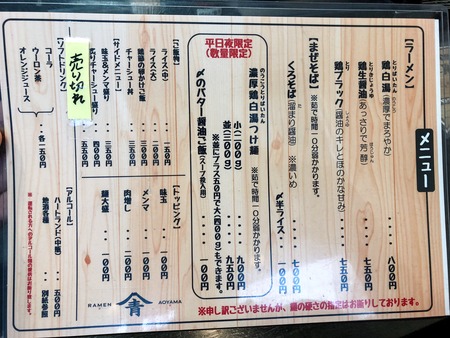 メニュー
【ラーメン】
とりぱいたん
鶏白湯(濃厚でまろやか)・・・八〇〇
とりきじょうゆ
鶏生醤油(あっさりで芳醇)・・・七五〇
鶏ブラック(醤油のキレとほのかな甘み)・・・七五〇
【まぜそば】※茹で時間一〇分弱かかります。
くろそば(溜まり醤油)※濃いめ・・・七〇〇
〆半ライス・・・五〇
平日夜限定
(数量限定)
のうこうとりぱいたん
濃厚鶏白湯つけ麺
※茹で時間一〇分弱かかります。
小(二〇〇g)・・・九〇〇
並(三〇〇g)・・・九五〇
※並にプラス五〇円で大(四〇〇g)もできます。
〆のバター醤油ご飯(スープ投入用)・・・一〇〇
【ご飯物】
ライス(中)
ライス(大)
鶏節の卵かけご飯
チャーシュー丼
【サイドメニュー】
味玉&メンマ盛り
炙りチャーシュー盛り
【トッピング】
味玉・・・一〇〇
メンマ・・・一〇〇
肉増し・・・二〇〇
麺大盛・・・一〇〇
売り切れ
【ソフトドリンク】
コーラ
ウーロン茶
オレンジジュース
・・各一五〇円
【アルコール】
ハートランド(中瓶)・・・五〇〇
地酒各種・・・別紙参照
※運転される方へのアルコール類の提供はお断り致します。
RAMEN
青
AOYAMA
※申し訳ございませんが、麺の硬さの指定はお断りしております。